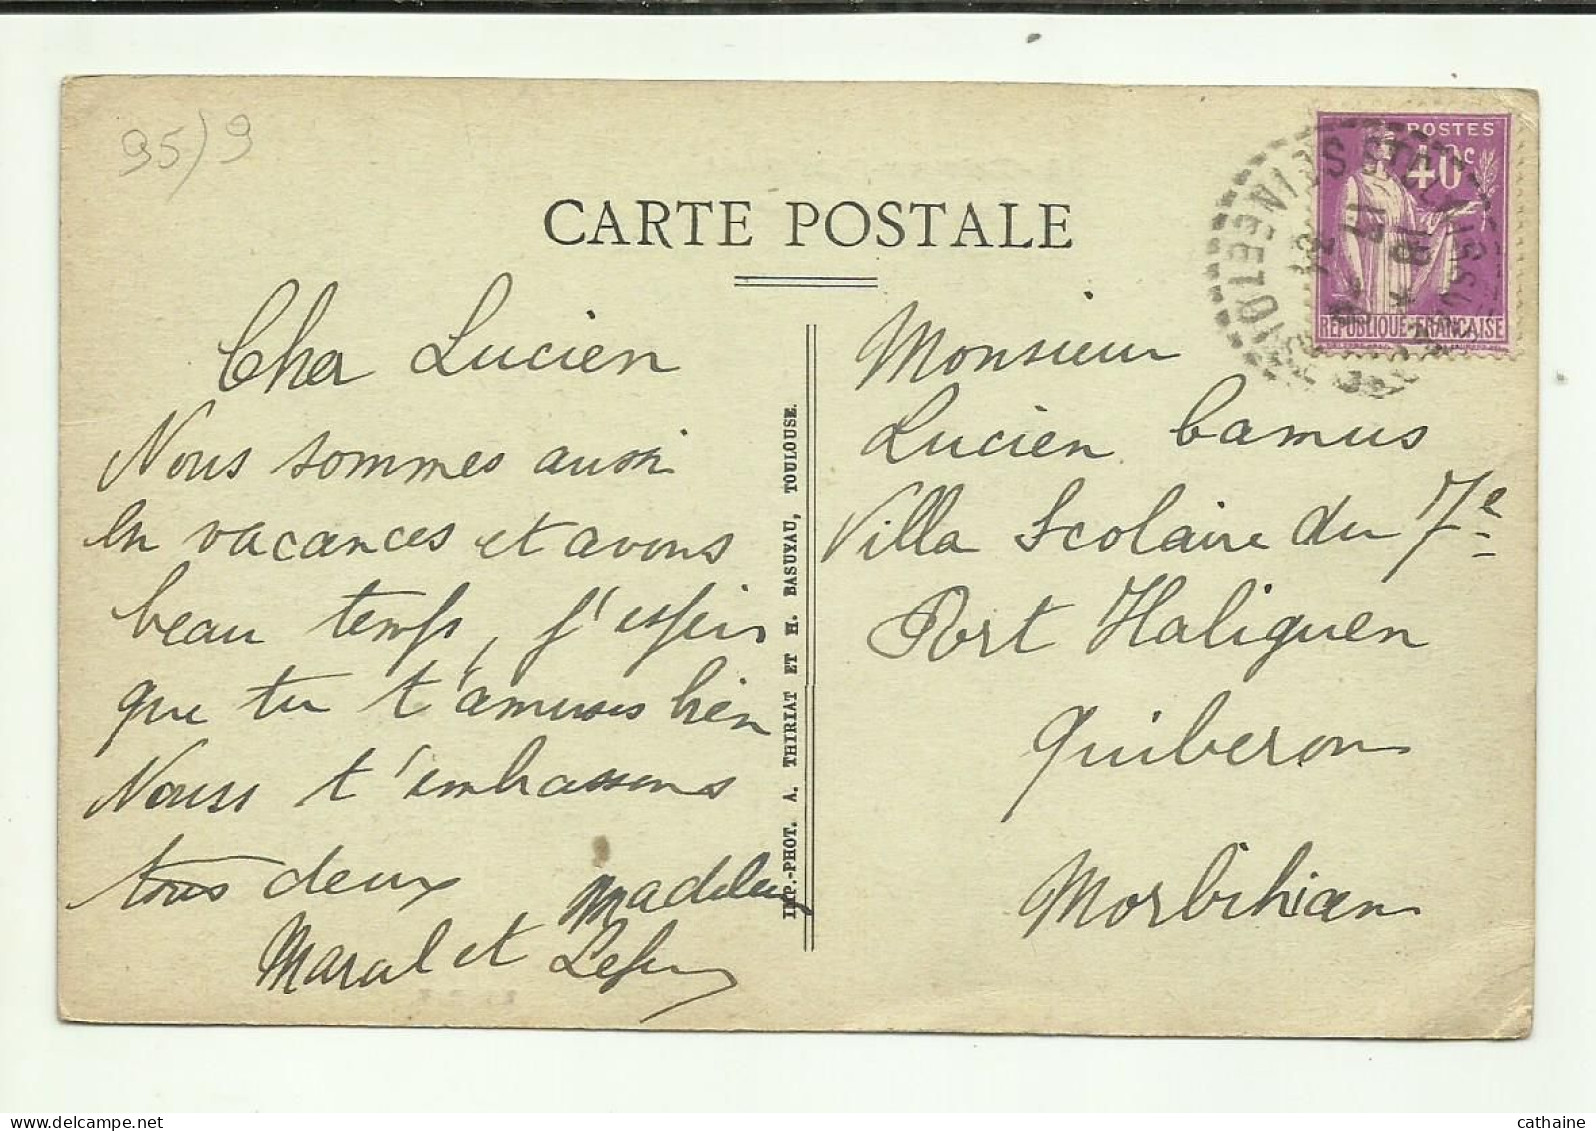 95/9
CARTE POSTALE
Cher Lucien
Nous sommes aussi
en vacances et avons
beau temps, j'espère
que tu t'amuses bien
Nous t'embrassons
tous deux
Marcel et
IMP.-PHOT. A. THIRIAT ET H. BASUYAU, TOULOUSE.
POSTES
40c
REPUBLIQUE FRANÇAISE
SEINE ET OISE
Monsieur
Lucien Camus
Villa Scolaire du 7e
Port Haliguen
Quiberon
Morbihan
cathaine